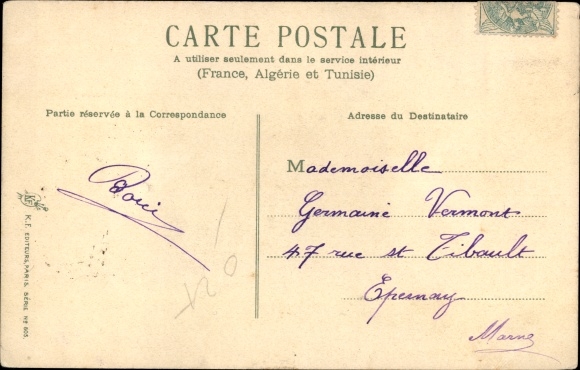 CARTE POSTALE
A utiliser seulement dans le service intérieur
(France, Algérie et Tunisie)
Partie réservée à la Correspondance
Adresse du Destinataire
Mademoiselle
Germaine Vermont
47 rue st Tibault
Epernay
Marne
K.F. EDITEURS, PARIS. SÉRIE No 603.